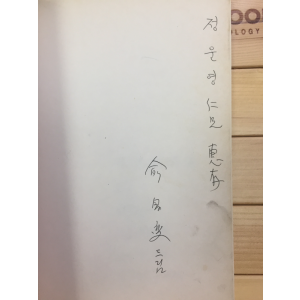 정운영仁兄惠存
兪昌燮드림
OO
OLOGY